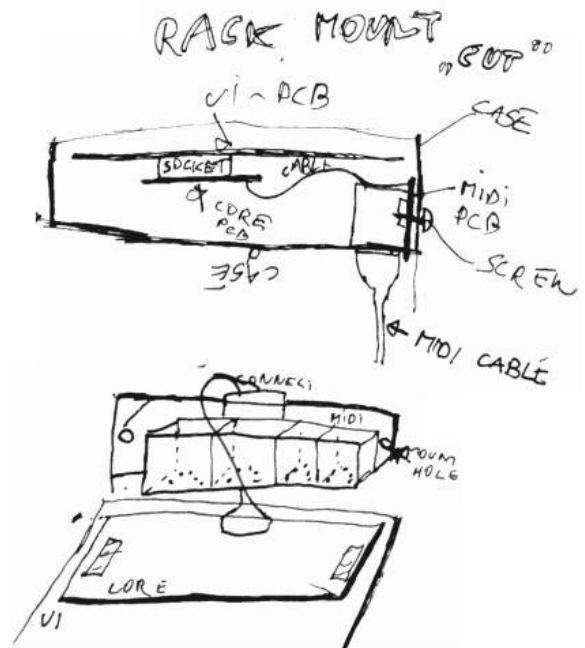 RACK MOUNT
„CUT"
UI-PCB
CASE
SOCKET
CABLE
MIDI
PCB
CORE
PCB
CASE
SCREW
MIDI CABLE
CONNECT
MIDI
MOUNT
HOLE
CORE
UI